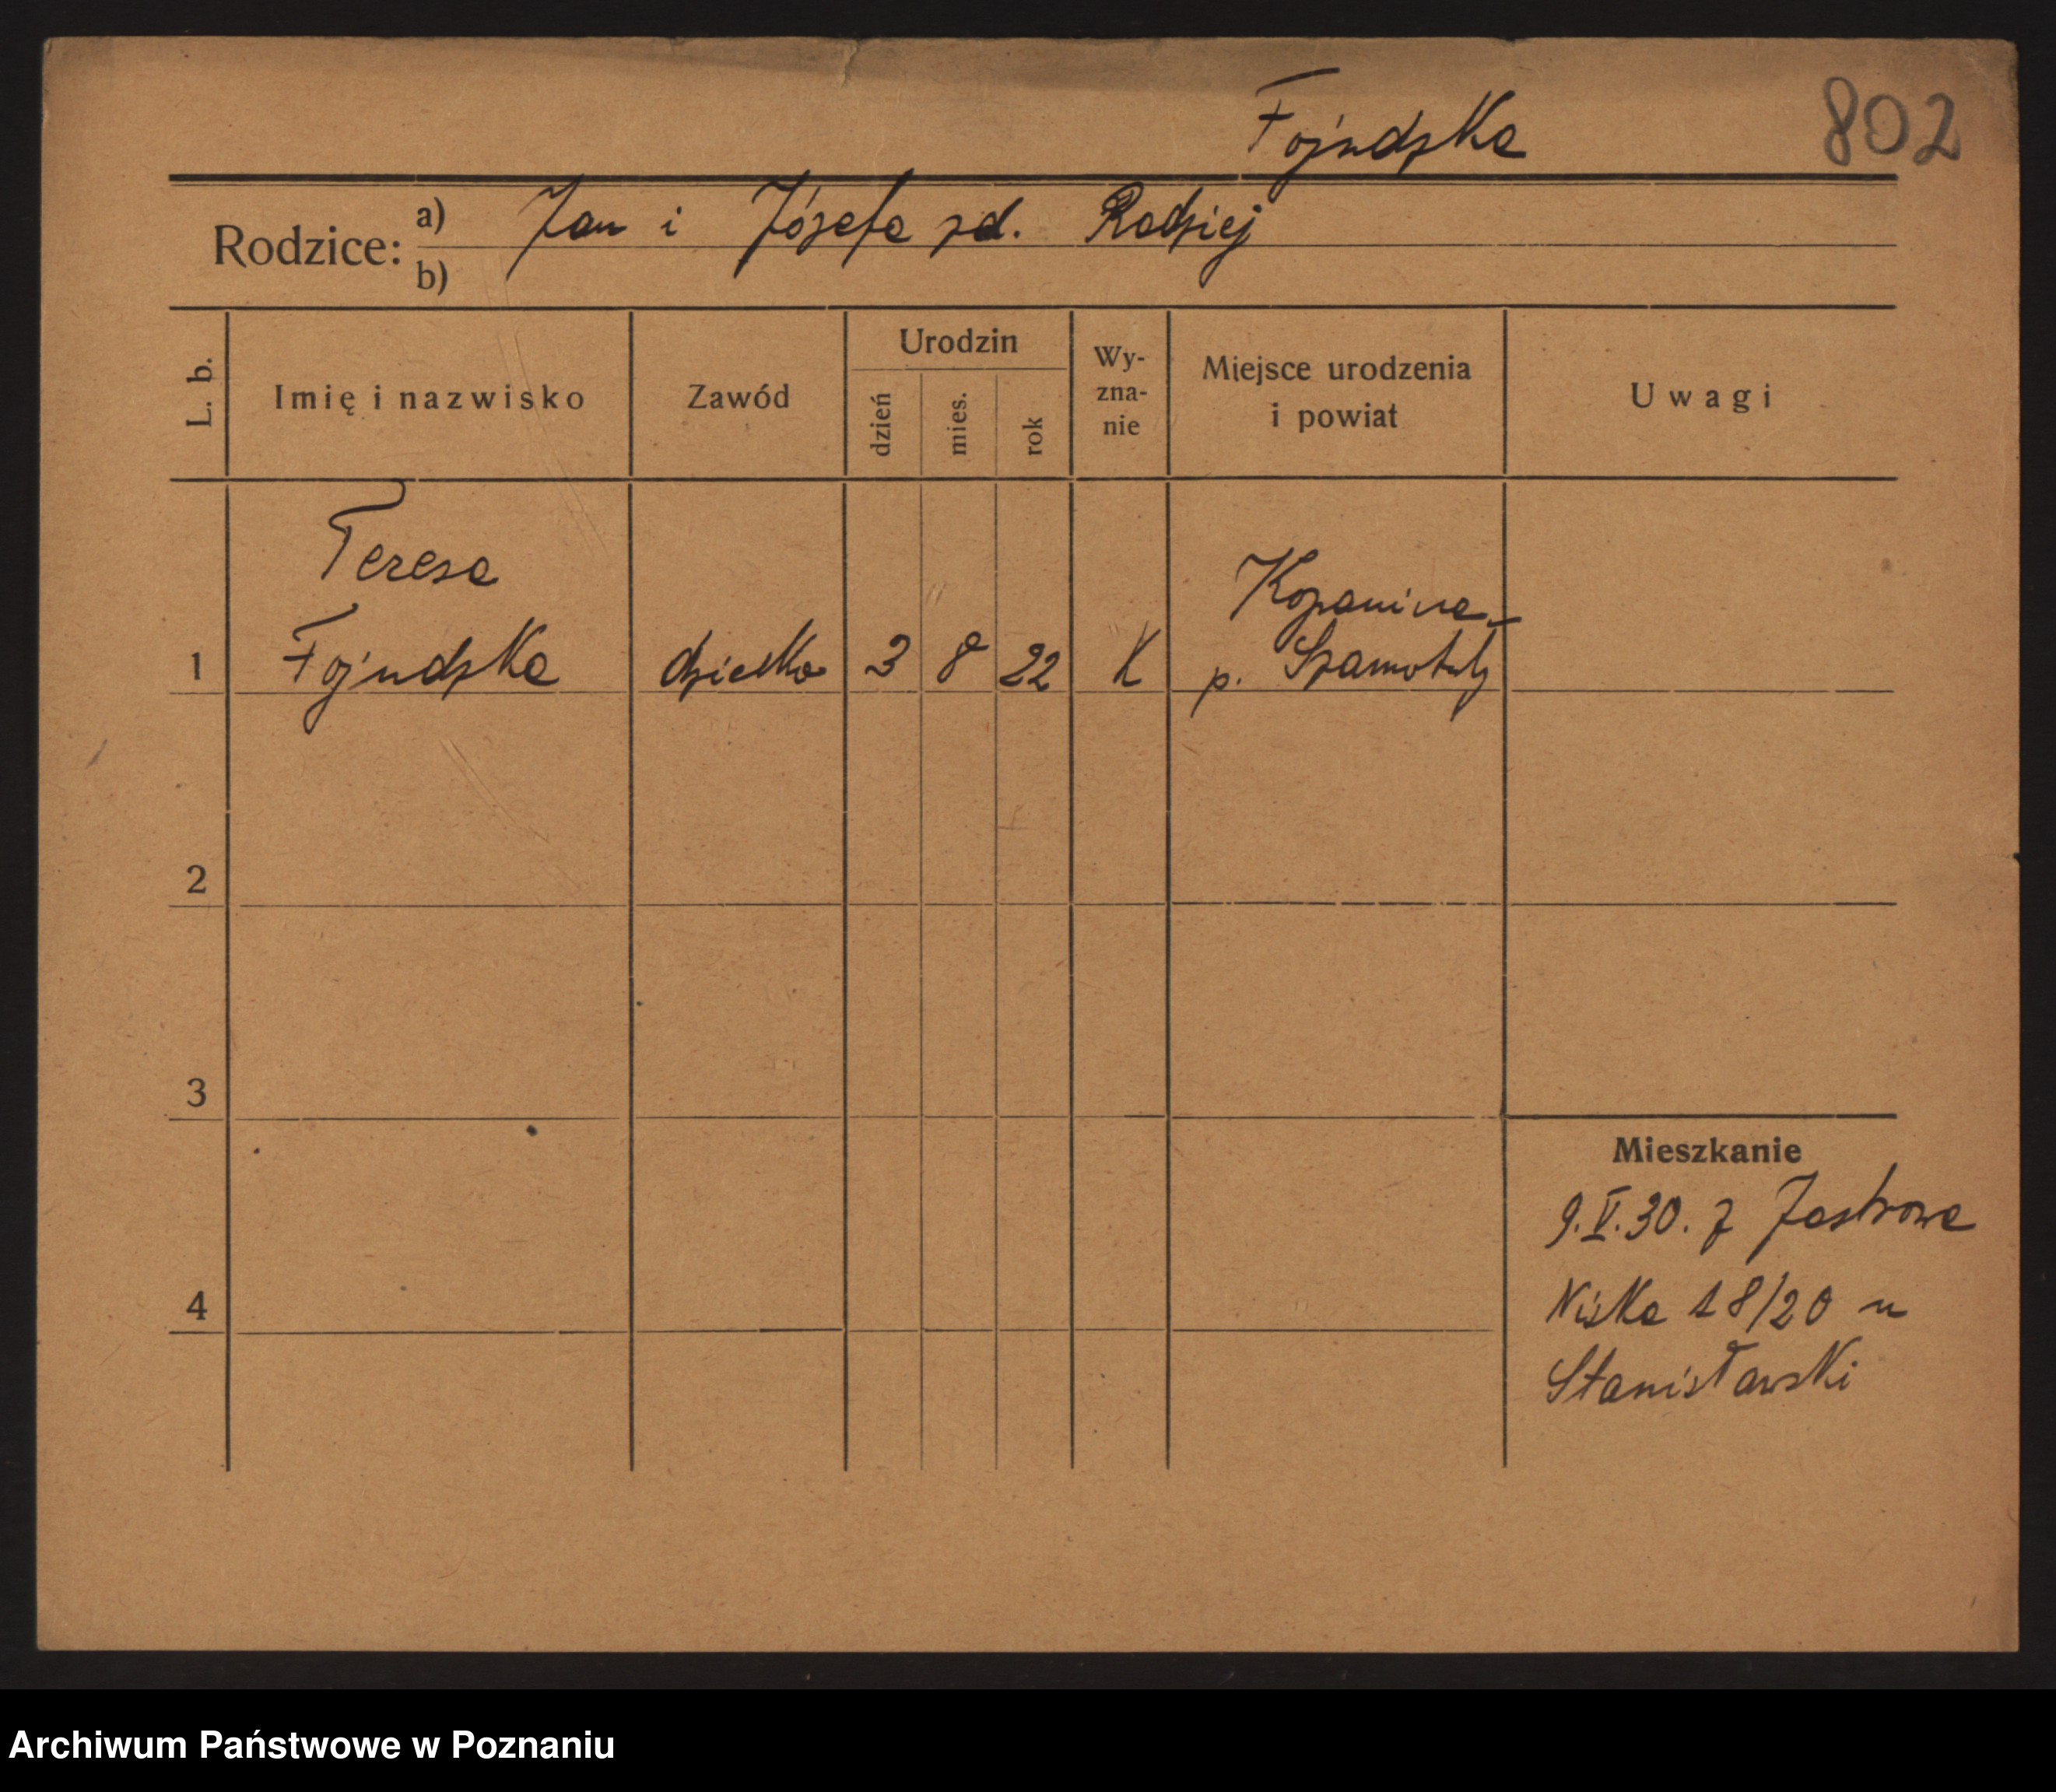 Fojudzka 802
Rodzice: a) Jan i Józefa zd. Radziej
b)
L. b. Imię i nazwisko Zawód Urodzin dzień mies. rok Wy-zna-nie Miejsce urodzenia i powiat Uwagi
Teresa
Kopanina
1 Fojudzka dziecko 3 8 22 K p. Szamotuły
2
3
Mieszkanie
9.V.30. z Jastrowa
4 Niska 18/20 u
Stanisławski
Archiwum Państwowe w Poznaniu